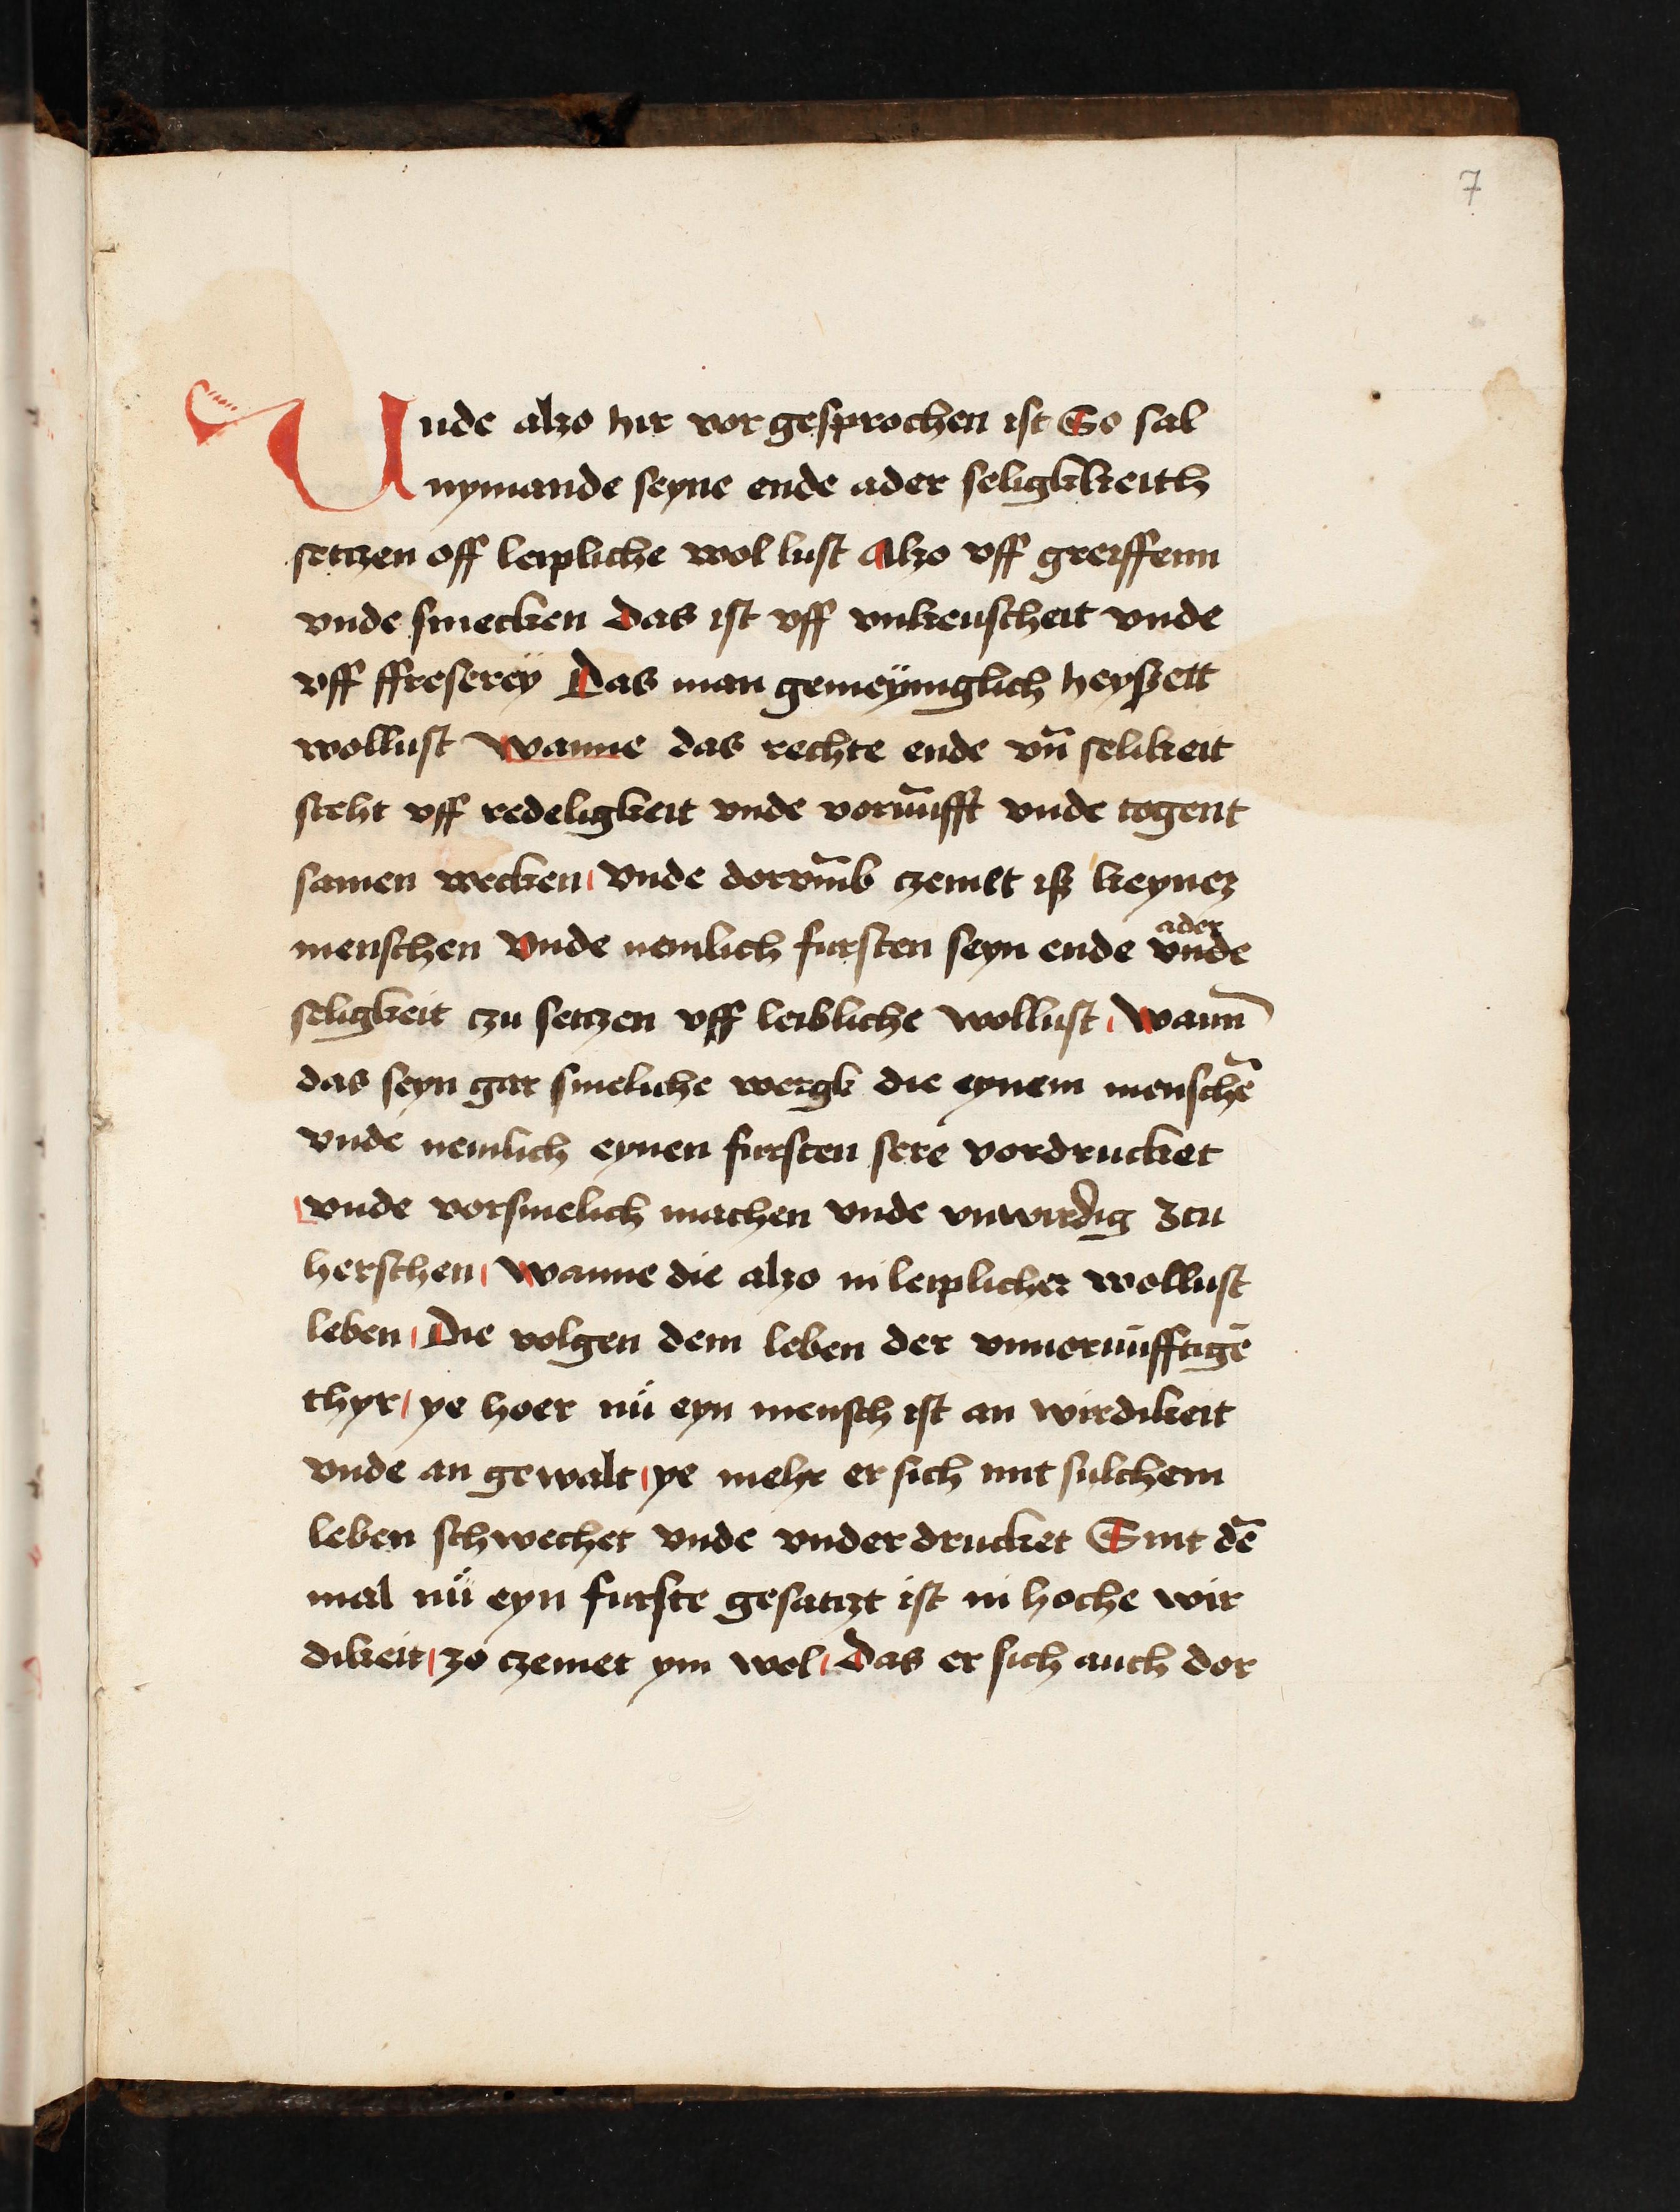 7
Unde alzo hir vor gesprochen ist So sal
nymande seyne ende ader seligkkeith
setczen off leipliche wol lust Alzo vff greiffenn
vnde smecken Das ist vff vnkeuscheit vnde
vff ffreserey Das man gemeÿniglich heyßett
wollust Wanne das rechte ende vn̄ selikeit
steht vff redeligkeit vnde vornūfft vnde togent
samen wecken Vnde dorvm̄b czemet iß keynez
menschen Vnde nemlich fursten seyn ende vnde
ader
seligkeit czu setczen vff leibliche wollust Wann̄
das seyn gar smeliche wergk die eynem menschē
vnde nemlich eynen fursten sere vordrucket
vnde vorsmelich machen vnde vnwirdig zcu
herschen Wanne die alzo in leiplicher wollust
leben Die volgen dem leben der vnuernūfftigē
thyr ye hoer nů eyn mensch ist an wirdikeit
vnde an gewalt ye mehr er sich mit sulchem
leben schwechet vnde vnder drucket Sint dē
mal nů eyn furste gesatczt ist in hoche wir
dikeit zo czemet ym wol Das er sich auch dor